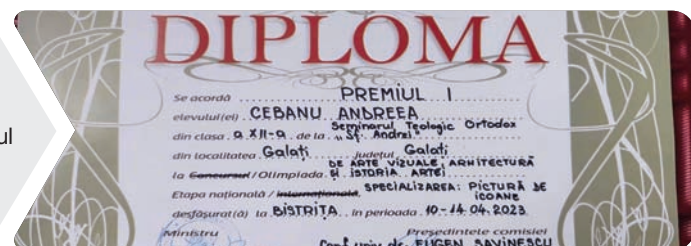 ul
DIPLOMA
Se acordă PREMIUL I
elevului(ei) CEBANU ANDREEA
din clasa a XII-a de la "Seminarul Teologic Ortodox Sf. Andrei"
din localitatea Galați județul Galați
la Concursul / Olimpiada DE ARTE VIZUALE, ARHITECTURĂ ȘI ISTORIA ARTEI
Etapa națională / internațională, SPECIALIZAREA: PICTURĂ DE ICOANE
desfășurat(ă) la BISTRIȚA în perioada 10-14.04.2023
Ministru Președintele comisiei
Conf. univ. dr. EUGEN SAVINESCU